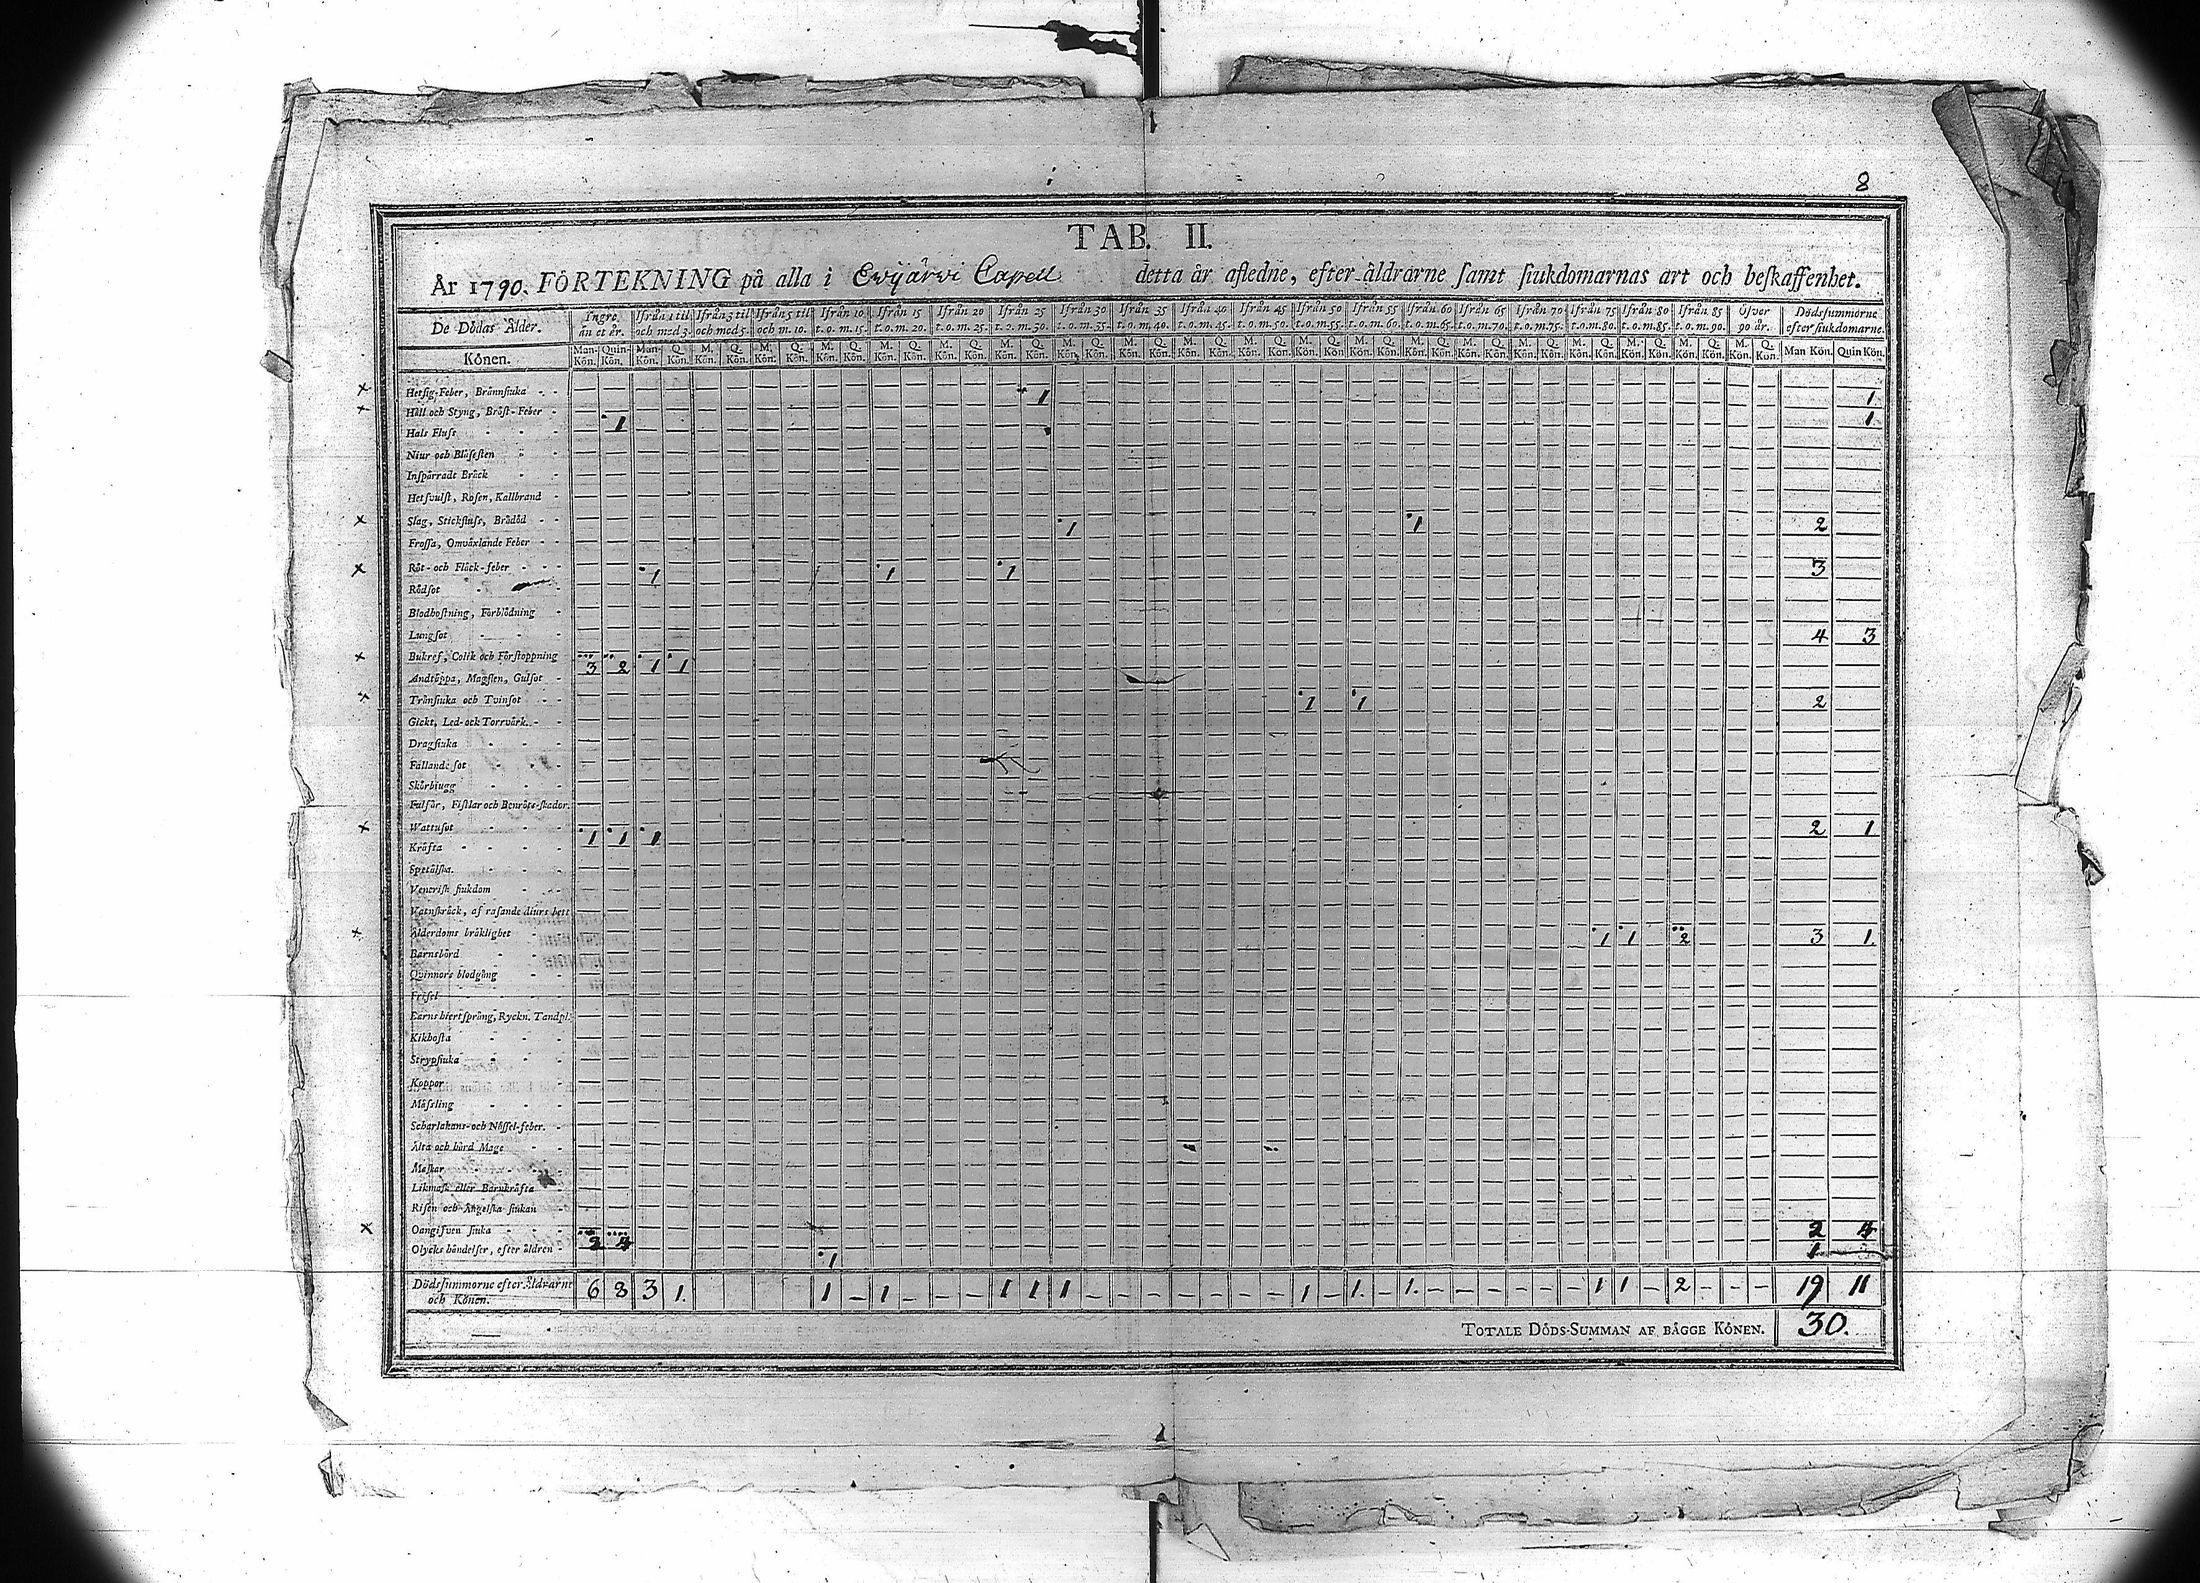 8
TAB. II.
År 1790. FÖRTEKNING på alla i Ewijärwi Capell detta år afledne, efter åldrarne samt siukdomarnas art och beskaffenhet.
De Dödas Ålder. Ingre än et år. Ifrån 1 til och med 3. Ifrån 3 til och med 5. Ifrån 5 til och m. 10. Ifrån 10 t. o. m. 15. Ifrån 15 t. o. m. 20. Ifrån 20 t. o. m. 25. Ifrån 25 t. o. m. 30. Ifrån 30 t. o. m. 35. Ifrån 35 t. o. m. 40. Ifrån 40 t. o. m. 45. Ifrån 45 t. o. m. 50. Ifrån 50 t. o. m. 55. Ifrån 55 t. o. m. 60. Ifrån 60 t. o. m. 65. Ifrån 65 t. o. m. 70. Ifrån 70 t. o. m. 75. Ifrån 75 t. o. m. 80. Ifrån 80 t. o. m. 85. Ifrån 85 t. o. m. 90. Öfver 90 år. Dödssummorne efter siukdomarne.
Könen. Man-Kön. Quin-Kön. Man-Kön. Q. Kön. M. Kön. Q. Kön. M. Kön. Q. Kön. M. Kön. Q. Kön. M. Kön. Q. Kön. M. Kön. Q. Kön. M. Kön. Q. Kön. M. Kön. Q. Kön. M. Kön. Q. Kön. M. Kön. Q. Kön. M. Kön. Q. Kön. M. Kön. Q. Kön. M. Kön. Q. Kön. M. Kön. Q. Kön. M. Kön. Q. Kön. M. Kön. Q. Kön. M. Kön. Q. Kön. M. Kön. Q. Kön. M. Kön. Q. Kön. M. Kön. Q. Kön. Man Kön. Quin Kön.
× Hetsig-Feber, Brännsiuka 1 1
× Håll och Styng, Bröst-Feber 1 1
Hals Fluss
Niur och Blåsesten
Inspärradt Bräck
Hetsvulst, Rosen, Kallbrand
× Slag, Stickfluss, Brådöd 1 1 2
Frossa, Omväxlande Feber
× Röt- och Fläck-feber 1 1 1 3
Rödsot
Blodhostning, Förblödning
Lungsot 4 3
× Bukref, Colik och Förstoppning 3 2 1 1
Andtäppa, Magsten, Gulsot
× Trånsiuka och Tvinsot 1 1 2
Gickt, Led- och Torrvärk
Dragsiuka
Fallande sot
Skörbiugg
Fulsår, Fistlar och Benröte-skador
× Wattusot 1 1 1 2 1
Kräfta
Spetälska
Venerisk siukdom
Vatnskräck, af rasande diurs bett
× Ålderdoms bräklighet 1 1 2 3 1
Barnsbörd
Quinnors blodgång
Frisel
Barns hiertsprång, Ryckn. Tandpl.
Kikhosta
Strypsiuka
Koppor
Måssling
Scharlakans- och Nässel-feber.
Älta och hård Mage
Maskar
Likmask eller Barnkräfta
Risen och Ängelska siukan
× Oangifven siuka 2 4 2 4
Olycks händelser, efter åldren 1 1
Dödssummorne efter Åldrarne och Könen. 6 8 3 1. 1 – 1 – – – 1 1 1 – – – – – – – 1 – 1. – 1. – – – – – – 1 1 – 2 – – – 19 11
TOTALE DÖDS-SUMMAN AF BÄGGE KÖNEN. 30.